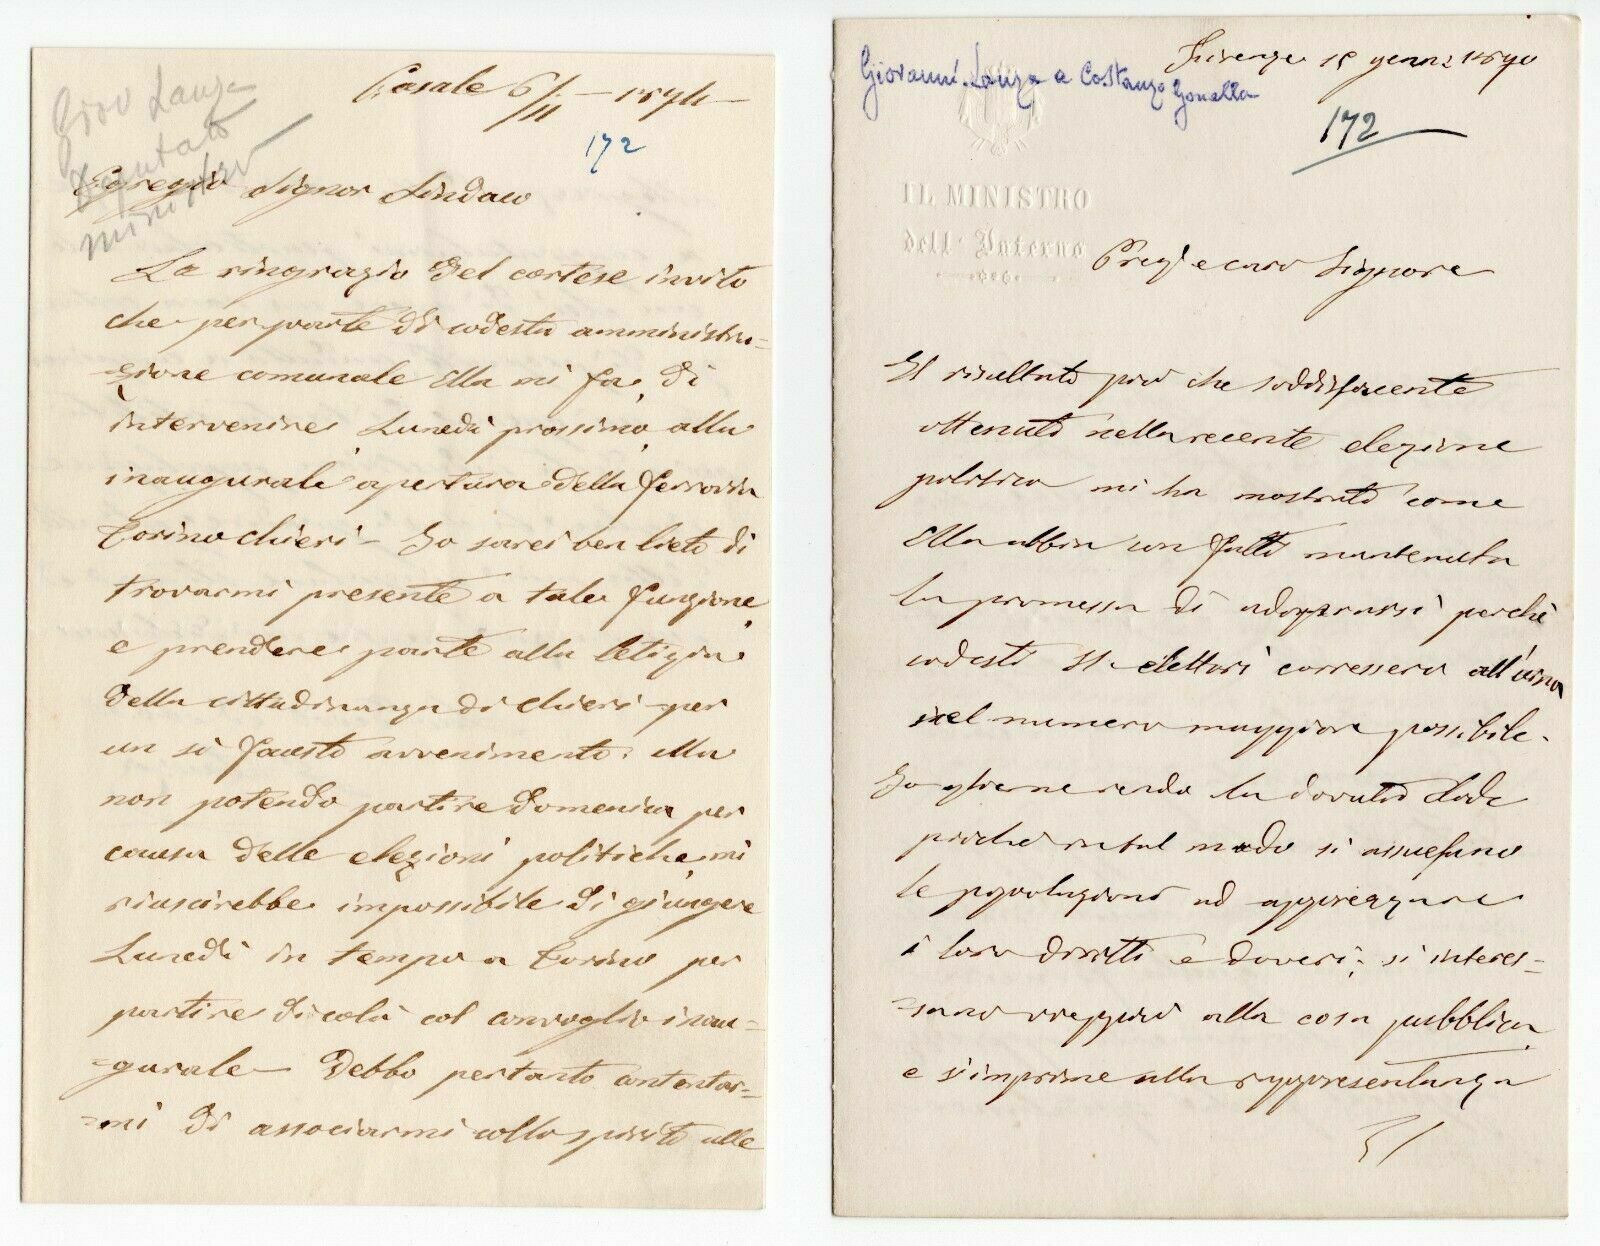 Giov Lanza
Deputato
ministro
Casale 6/11 — 1874 —
172
Egregio Signor Sindaco
La ringrazio del cortese invito
che per parte di codesta amministra=
zione comunale Ella mi fa, di
intervenire Lunedì prossimo alla
inaugurale apertura della ferrovia
Torino Chieri — Io sarei ben lieto di
trovarmi presente a tale funzione,
e prendere parte alla letizia
della cittadinanza di Chieri per
un sì fausto avvenimento; Ma
non potendo partire domenica per
causa delle elezioni politiche, mi
riuscirebbe impossibile di giungere
Lunedì in tempo a Torino per
partire di colà col convoglio inau=
=gurale — Debbo pertanto contentar=
=mi di associarmi collo spirito alle
Giovanni Lanza a Costanzo Gonella
Firenze 15 genn: 1870
172
IL MINISTRO
dell' Interno
Preg. e caro Signore
Il risultato più che soddisfacente
ottenuto nella recente elezione
politica mi ha mostrato come
Ella abbia con fatti mantenuta
la promessa di adoprarsi perché
codesti SS. elettori corressero all'urna
nel numero maggiore possibile.
Io gliene rendo la dovuta lode
perché in tal modo si assuefano
le popolazioni ad apprezzare
i loro diritti e doveri; si interes=
=sano vieppiù alla cosa pubblica,
e s'imprime alla rappresentanza